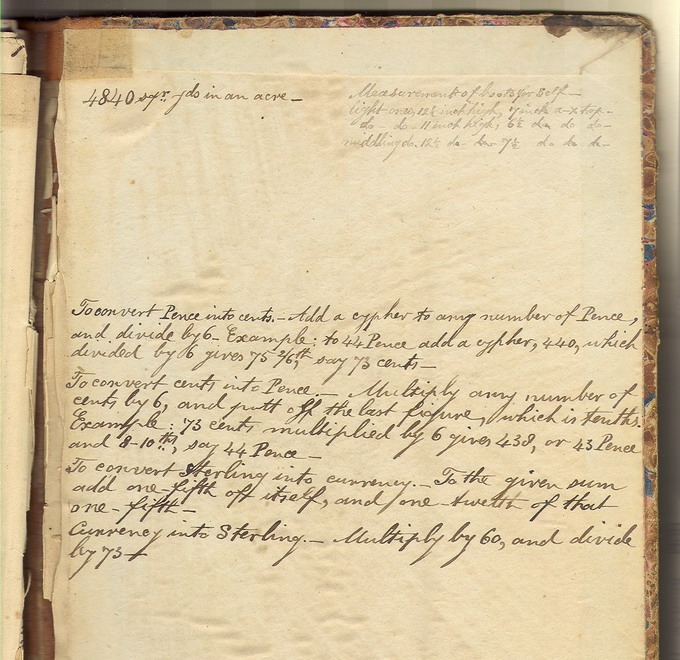 4840 sqr yds in an acre –
Measurement of boots for Self –
light ones, 12½ inch high, 7 inch a-x top –
do – do – 11 inch high, 6½ do do do –
middling do. 12½ do – 7½ do do do –
To convert Pence into cents. – Add a cypher to any number of Pence,
and divide by 6 – Example: to 44 Pence add a cypher, 440, which
divided by 6 gives 75 2/6th, say 73 cents –
To convert cents into Pence. – Multiply any number of
cents by 6, and putt off the last figure, which is tenths.
Example: 73 cents multiplied by 6 gives 438, or 43 Pence
and 8-10ths, say 44 Pence –
To convert Sterling into currency. – To the given sum
add one-fifth off itself, and one-twelth of that
one-fifth –
Currency into Sterling. – Multiply by 60, and divide
by 73 –